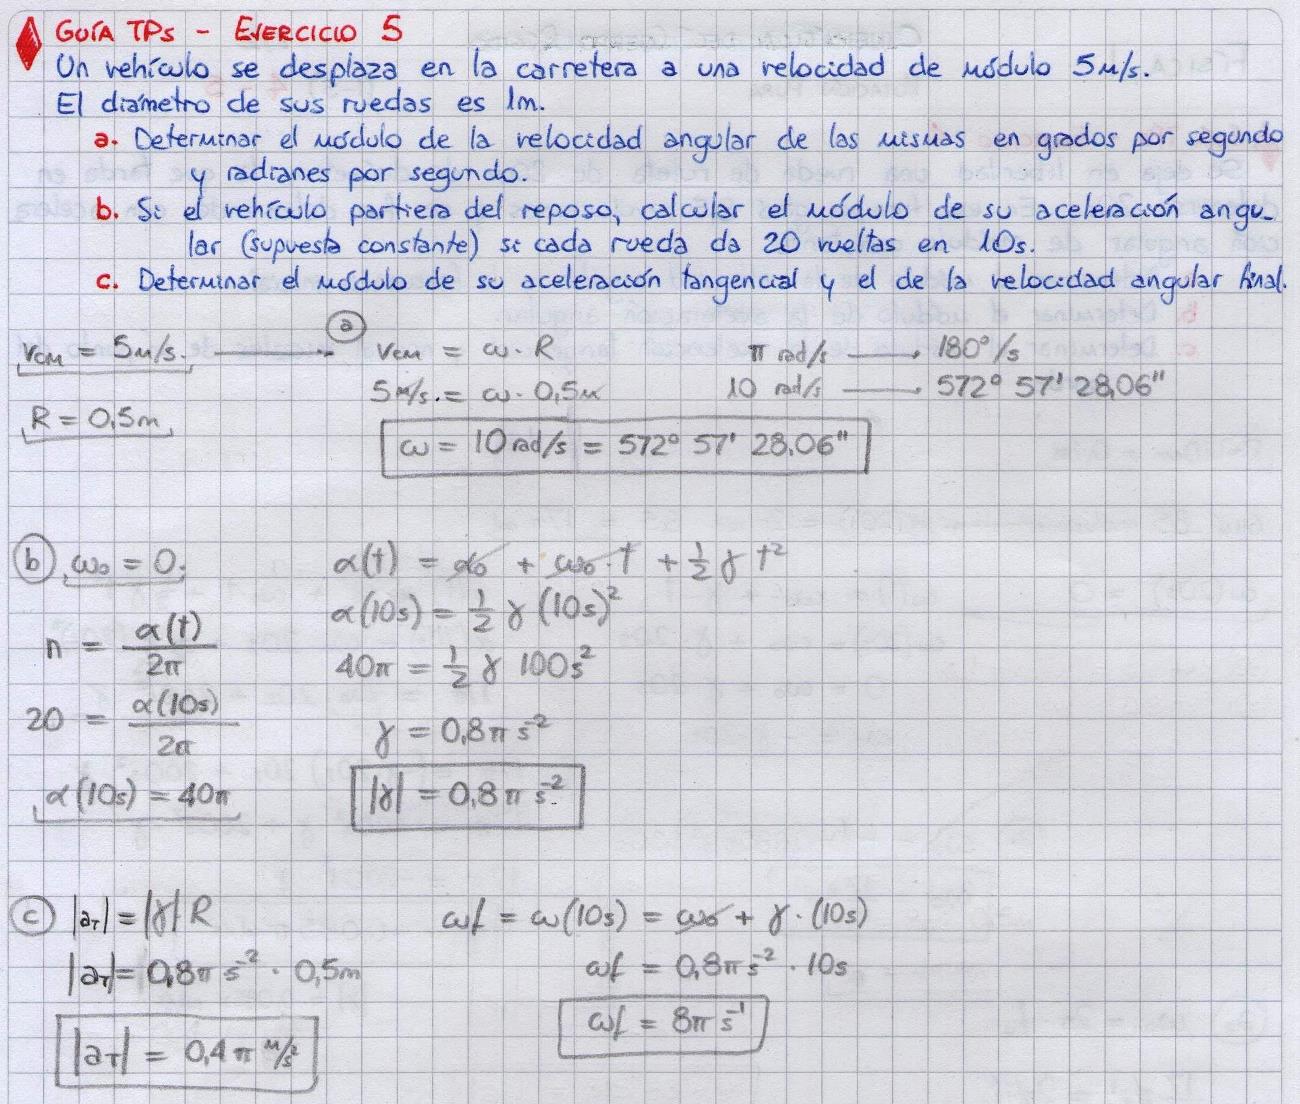 GUÍA TPs - EJERCICIO 5
Un vehículo se desplaza en la carretera a una velocidad de módulo 5m/s.
El diámetro de sus ruedas es 1m.
a. Determinar el módulo de la velocidad angular de las mismas en grados por segundo
y radianes por segundo.
b. Si el vehículo partiera del reposo, calcular el módulo de su aceleración angu-
lar (supuesta constante) si cada rueda da 20 vueltas en 10s.
c. Determinar el módulo de su aceleración tangencial y el de la velocidad angular final.
a
v_CM = 5m/s. → v_CM = ω · R
π rad/s → 180°/s
5 m/s. = ω · 0,5m
10 rad/s → 572° 57' 28,06"
R = 0,5m
ω = 10 rad/s = 572° 57' 28,06"
b ω₀ = 0.
α(t) = α₀ + ω₀ · t + ½ γ t²
α(10s) = ½ γ (10s)²
n = α(t)/2π
40π = ½ γ 100s²
20 = α(10s)/2π
γ = 0,8π s⁻²
α(10s) = 40π
|γ| = 0,8π s⁻².
c |a_T| = |γ| R
ωf = ω(10s) = ω₀ + γ · (10s)
|a_T| = 0,8π s⁻² · 0,5m
ωf = 0,8π s⁻² · 10s
ωf = 8π s⁻¹
|a_T| = 0,4π m/s²